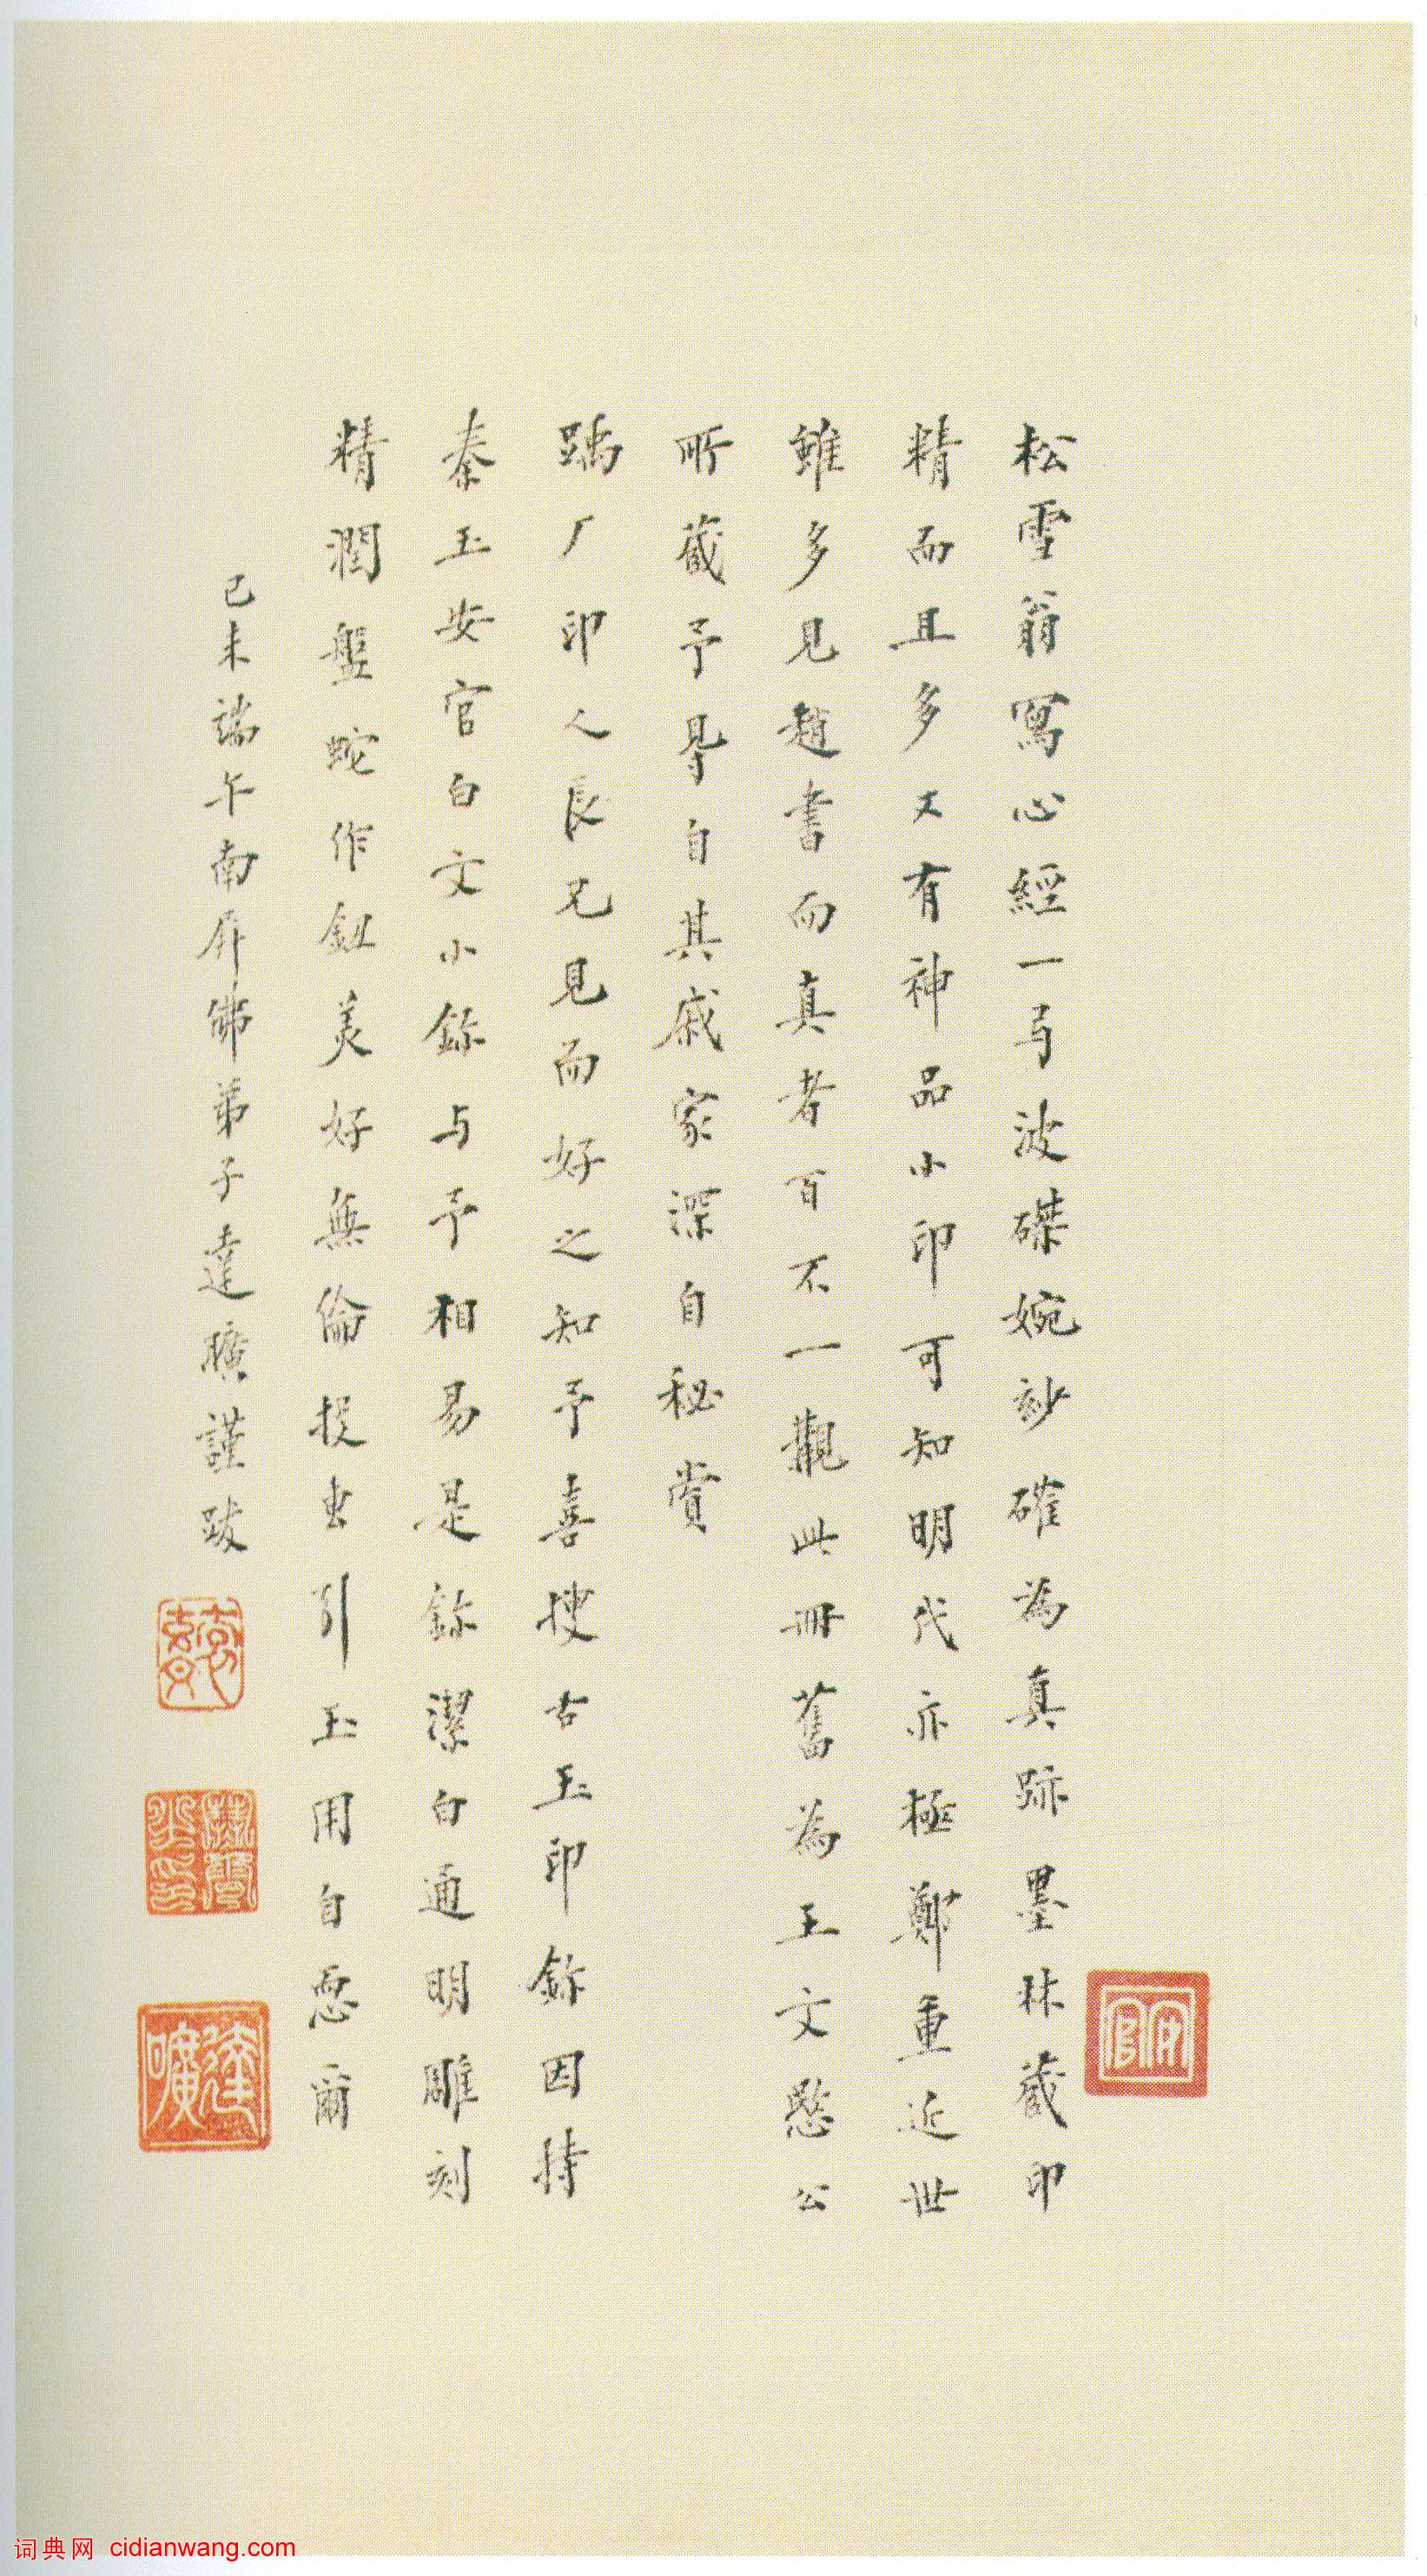 松雪翁寫心經一弓波磔婉妙確為真跡墨林藏印
精而且多又有神品小印可知明代亦極鄭重近世
雖多見趙書而真者百不一觀此冊舊為王文愨公
所藏予得自其戚家深自秘賞
踽厂印人長兄見而好之知予喜搜古玉印鉨因持
秦玉安官白文小鉨与予相易是鉨潔白通明雕刻
精潤盤蛇作鈕美好無倫投虫引玉用自恧爾
己未端午南屏佛弟子達曠謹跋
安官
達曠
词典网 cidianwang.com